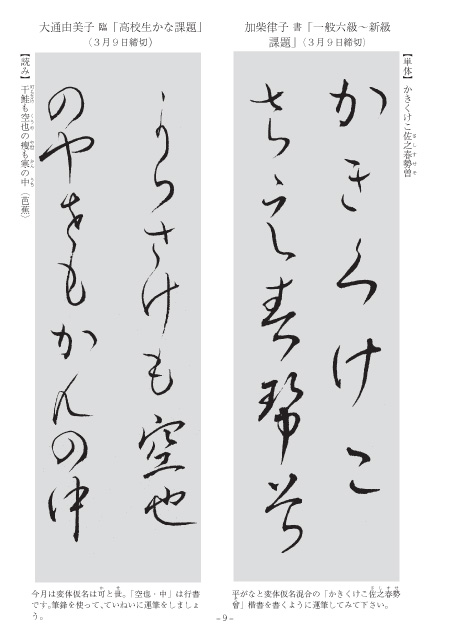 加柴律子 書「一般六級～新級
課題」（３月９日締切）
【単体】かきくけこ佐之春勢曽
かきくけこ
佐之春勢曽
平がなと変体仮名混合の「かきくけこ佐之春勢
曽」楷書を書くように運筆してみて下さい。
大通由美子 臨「高校生かな課題」
（３月９日締切）
可らさけも空也
のや世もかんの中
【読み】干鮭も空也の痩も寒の中（芭蕉）
今月は変体仮名は可と世。「空也・中」は行書
です。筆鋒を使って、ていねいに運筆をしましょ
う。
－9－